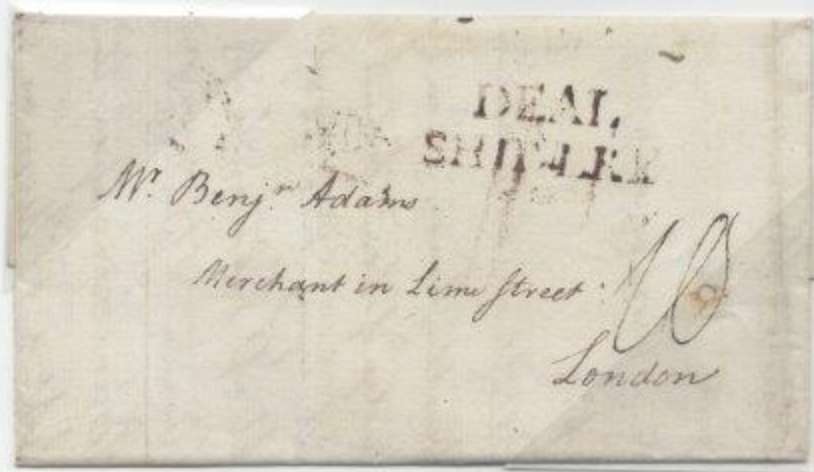 DEAL
SHIP LRE
Mr Benjn Adams
Merchant in Lime Street
10
London